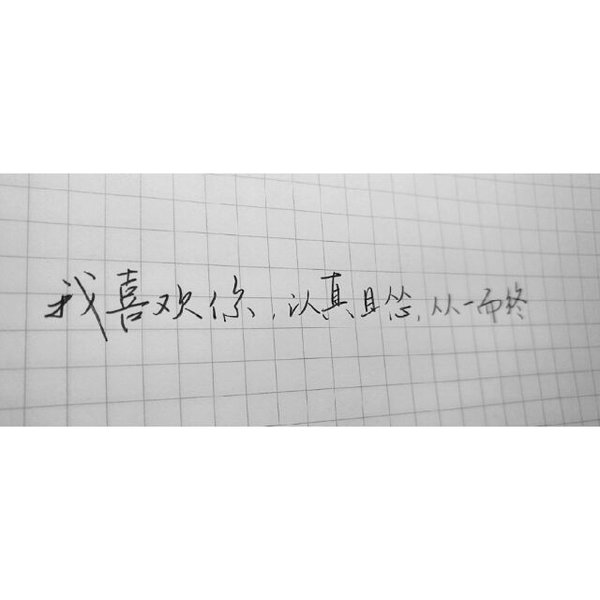 我喜欢你，认真且怂，从一而终